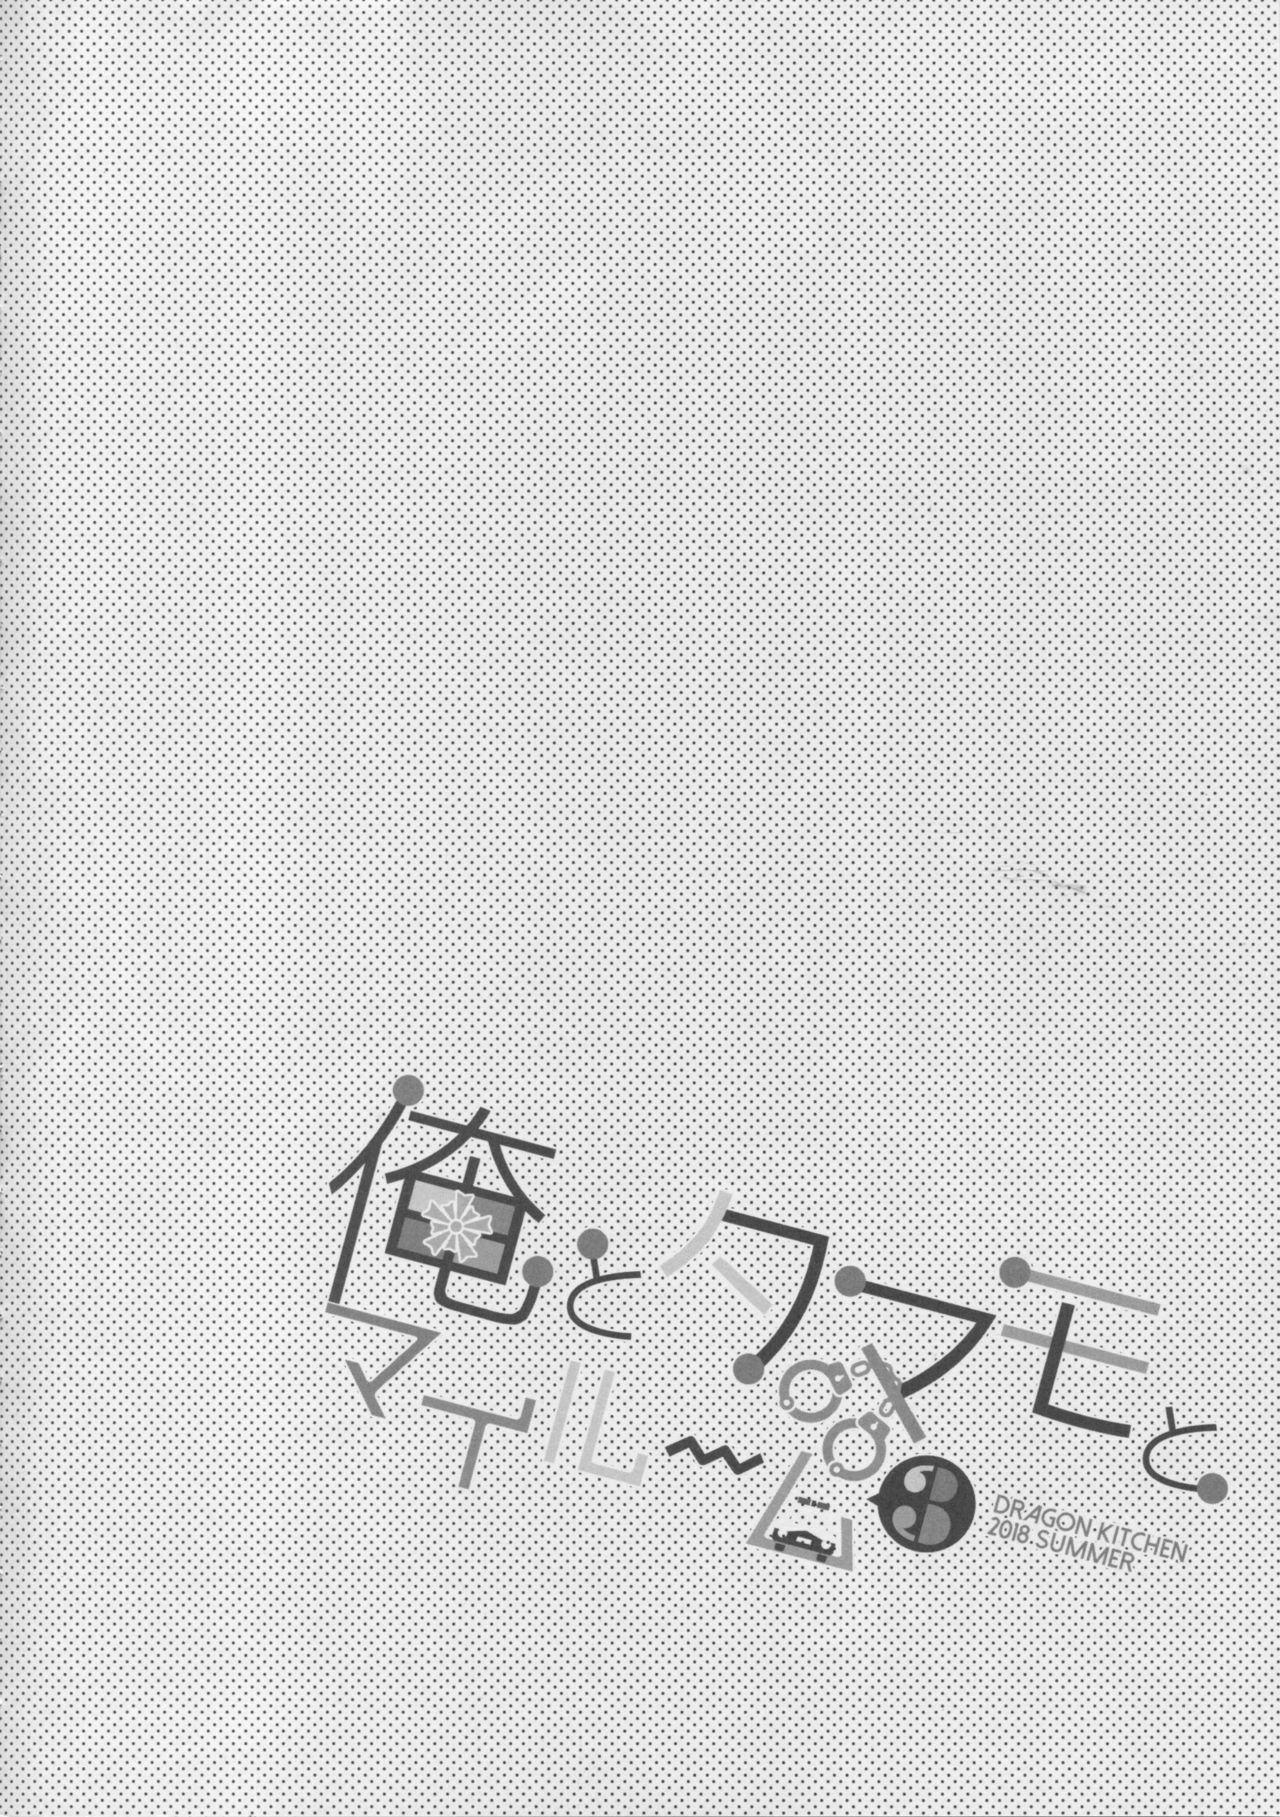 俺とタマモと
マイル～ム 3
DRAGON・KITCHEN.
2018.SUMMER